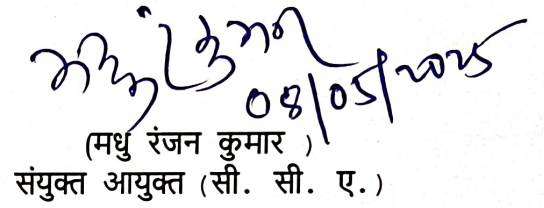 मधु रं कुमार
08/05/2025
(मधु रंजन कुमार )
संयुक्त आयुक्त (सी. सी. ए.)